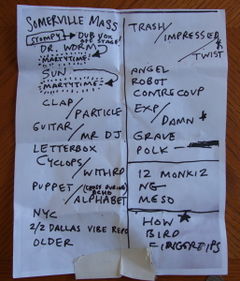 SOMERVILLE MASS
STOMPY → DUB VOX
OFF STAGE
DR. WORM
MARTYTIME
SUN
MARTYTIME
CLAP
/PARTICLE
GUITAR
/MR DJ
LETTERBOX
CYCLOPS
/WITHRD
PUPPET (CROSS DURING ECHO
/ALPHABET
NYC
2/2 DALLAS VIBE REPO
OLDER
TRASH
/IMPRESSED
/TWIST
ANGEL
ROBOT
CONTRECOUP
EXP
/DAMN
GRAVE
POLK —
12 MONKIZ
NG
MESO
HOW
BIRD
FINGERTIPS